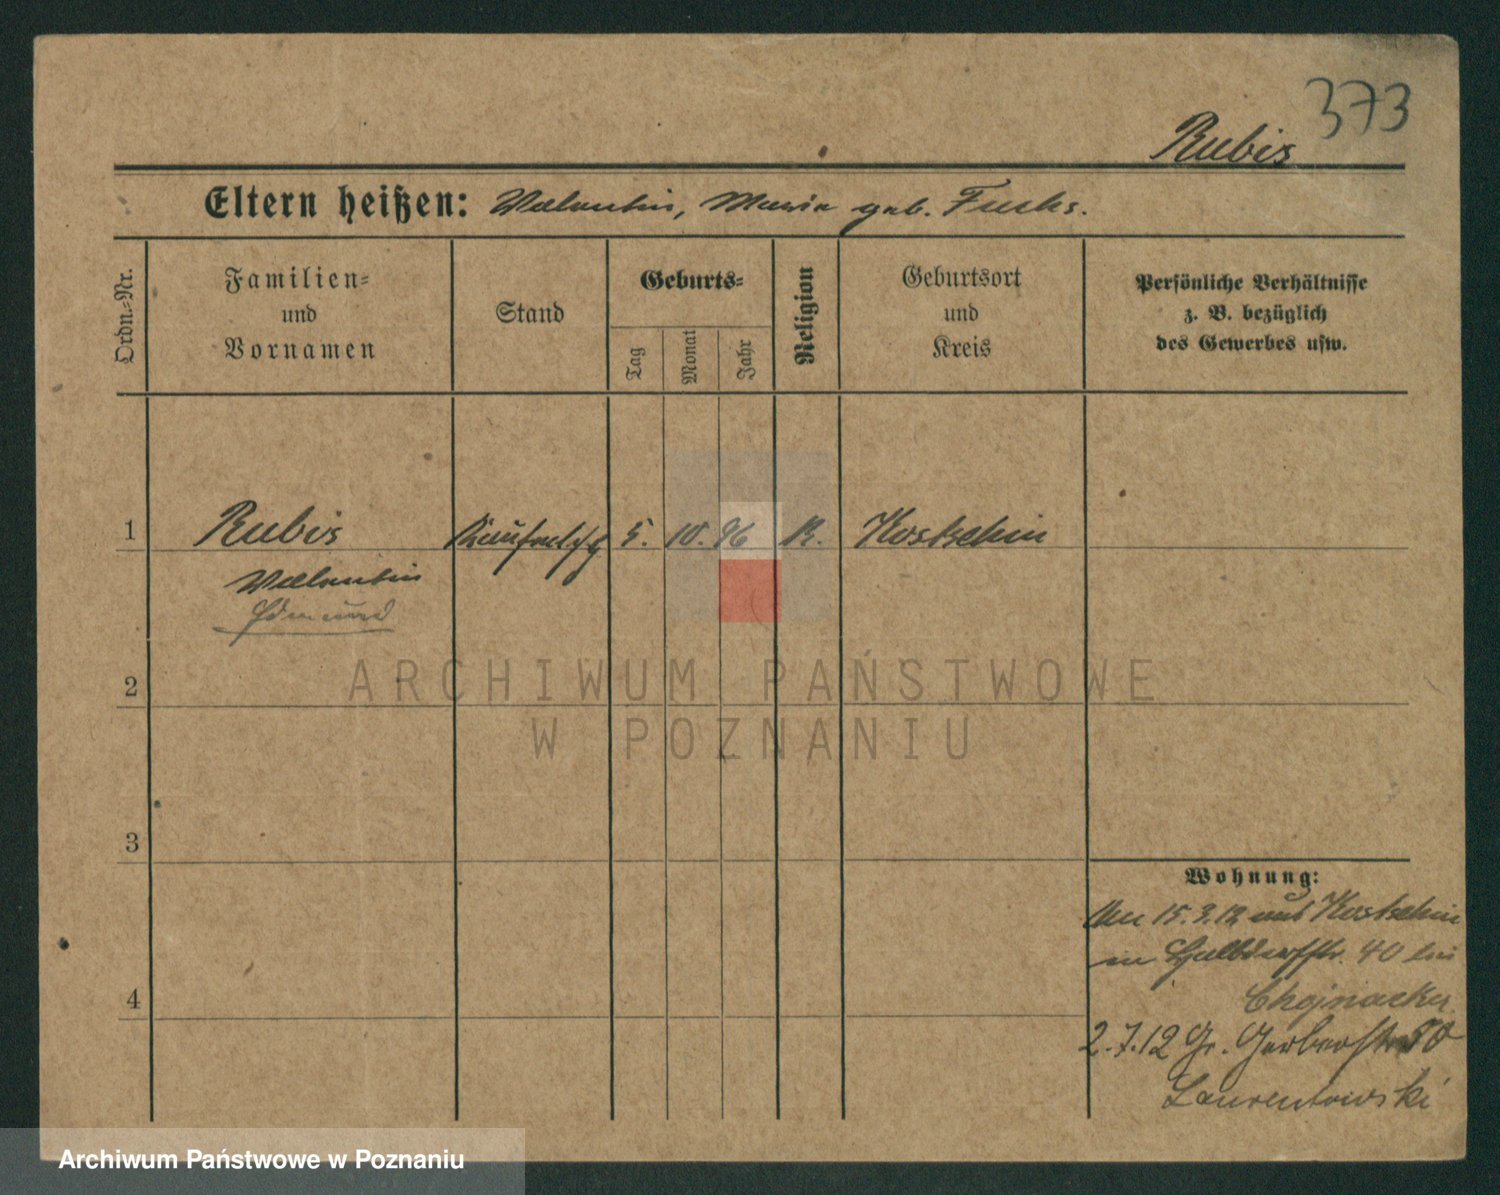 373
Rubis
Eltern heißen: Valentin, Maria geb. Fuchs.
Ordn.-Nr.
Familien-
und
Vornamen
Stand
Geburts-
Tag
Monat
Jahr
Religion
Geburtsort
und
Kreis
Persönliche Verhältnisse
z. B. bezüglich
des Gewerbes usw.
1 Rubis 5. 10. 96 K. Kostschin
Valentin
Edmund
2
3
4
Wohnung:
Am 15.3.12 aus Kostschin
in Halbdorfstr. 40 bei
2.7.12 Gr. Gerberstr 50
Laurentowski
ARCHIWUM PAŃSTWOWE
W POZNANIU
Archiwum Państwowe w Poznaniu